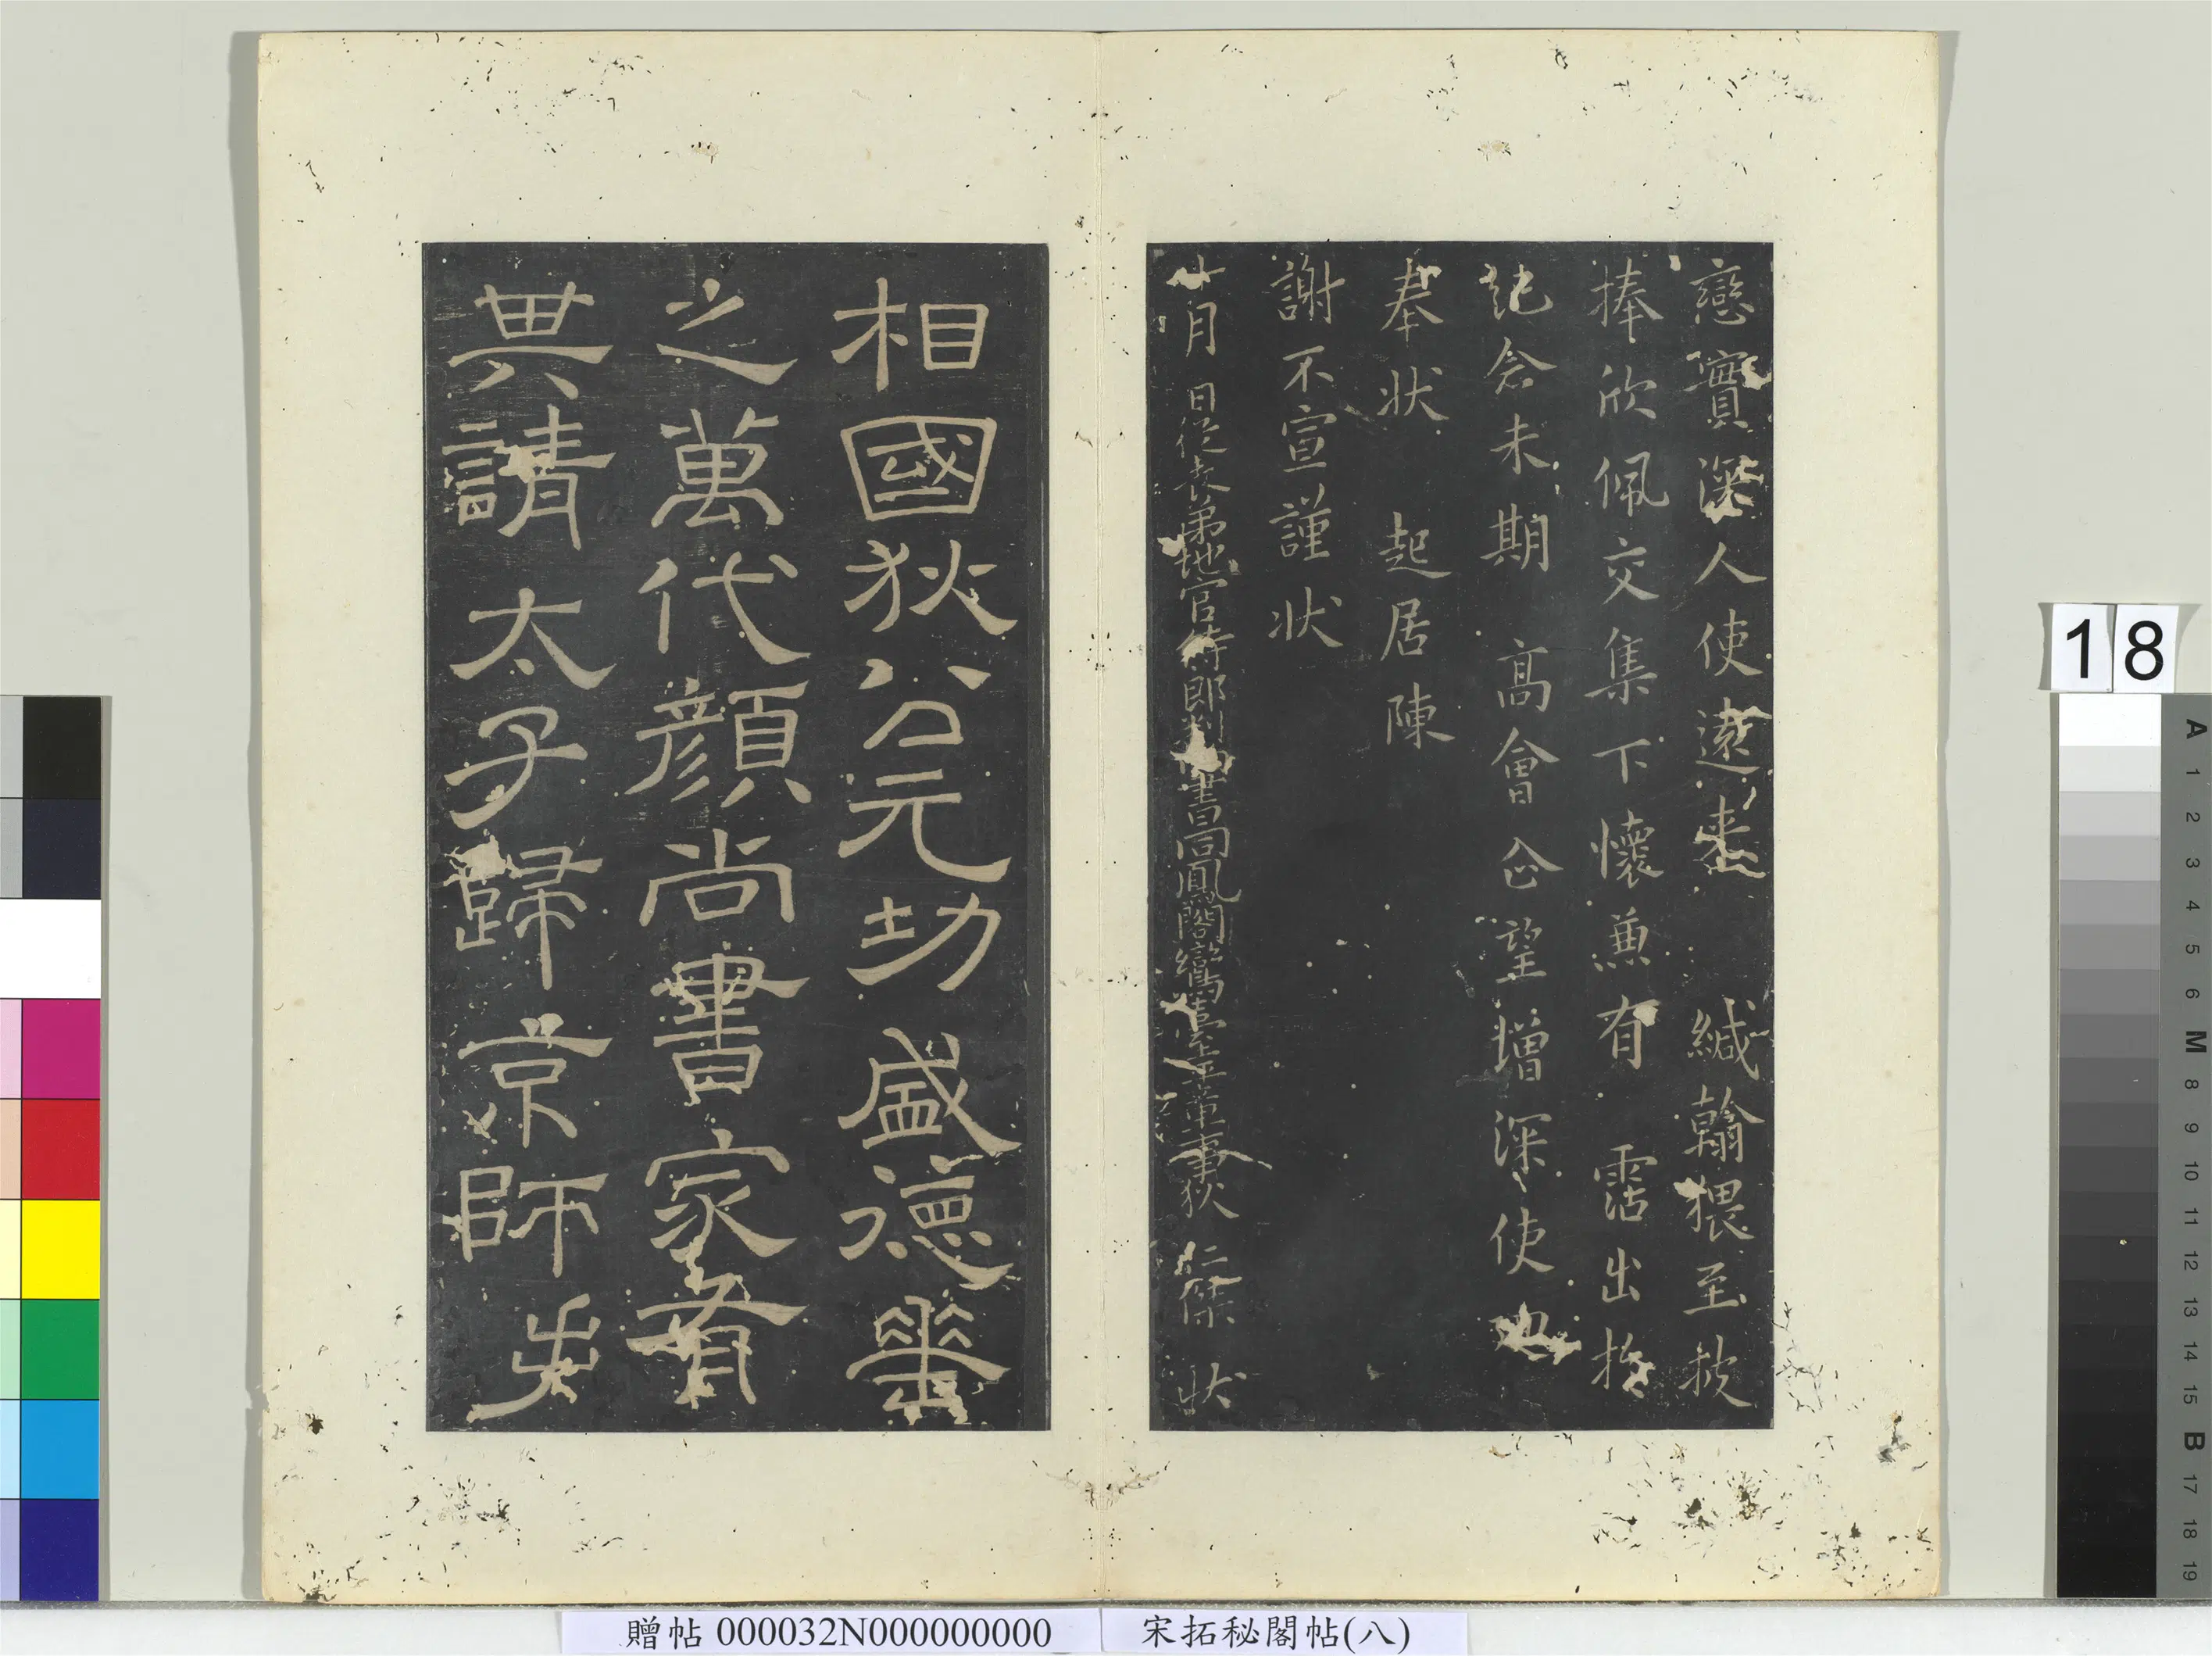 戀實深人使遠来　緘翰猥至披
捧欣佩交集下懷兼有　霑出拎
紀念未期　髙會企望增深使
奉狀　起居陳
謝不宣謹狀
廿月　日從表弟地官侍郎判尚書同鳳閣鸞臺平章事狄　仁傑　狀
相國狄公元功盛德垂
之萬代顔尚書家有
其請太子歸京師表
18
贈帖 000032N000000000
宋拓秘閣帖(八)
A 1 2 3 4 5 6 M 8 9 10 11 12 13 14 15 B 17 18 19